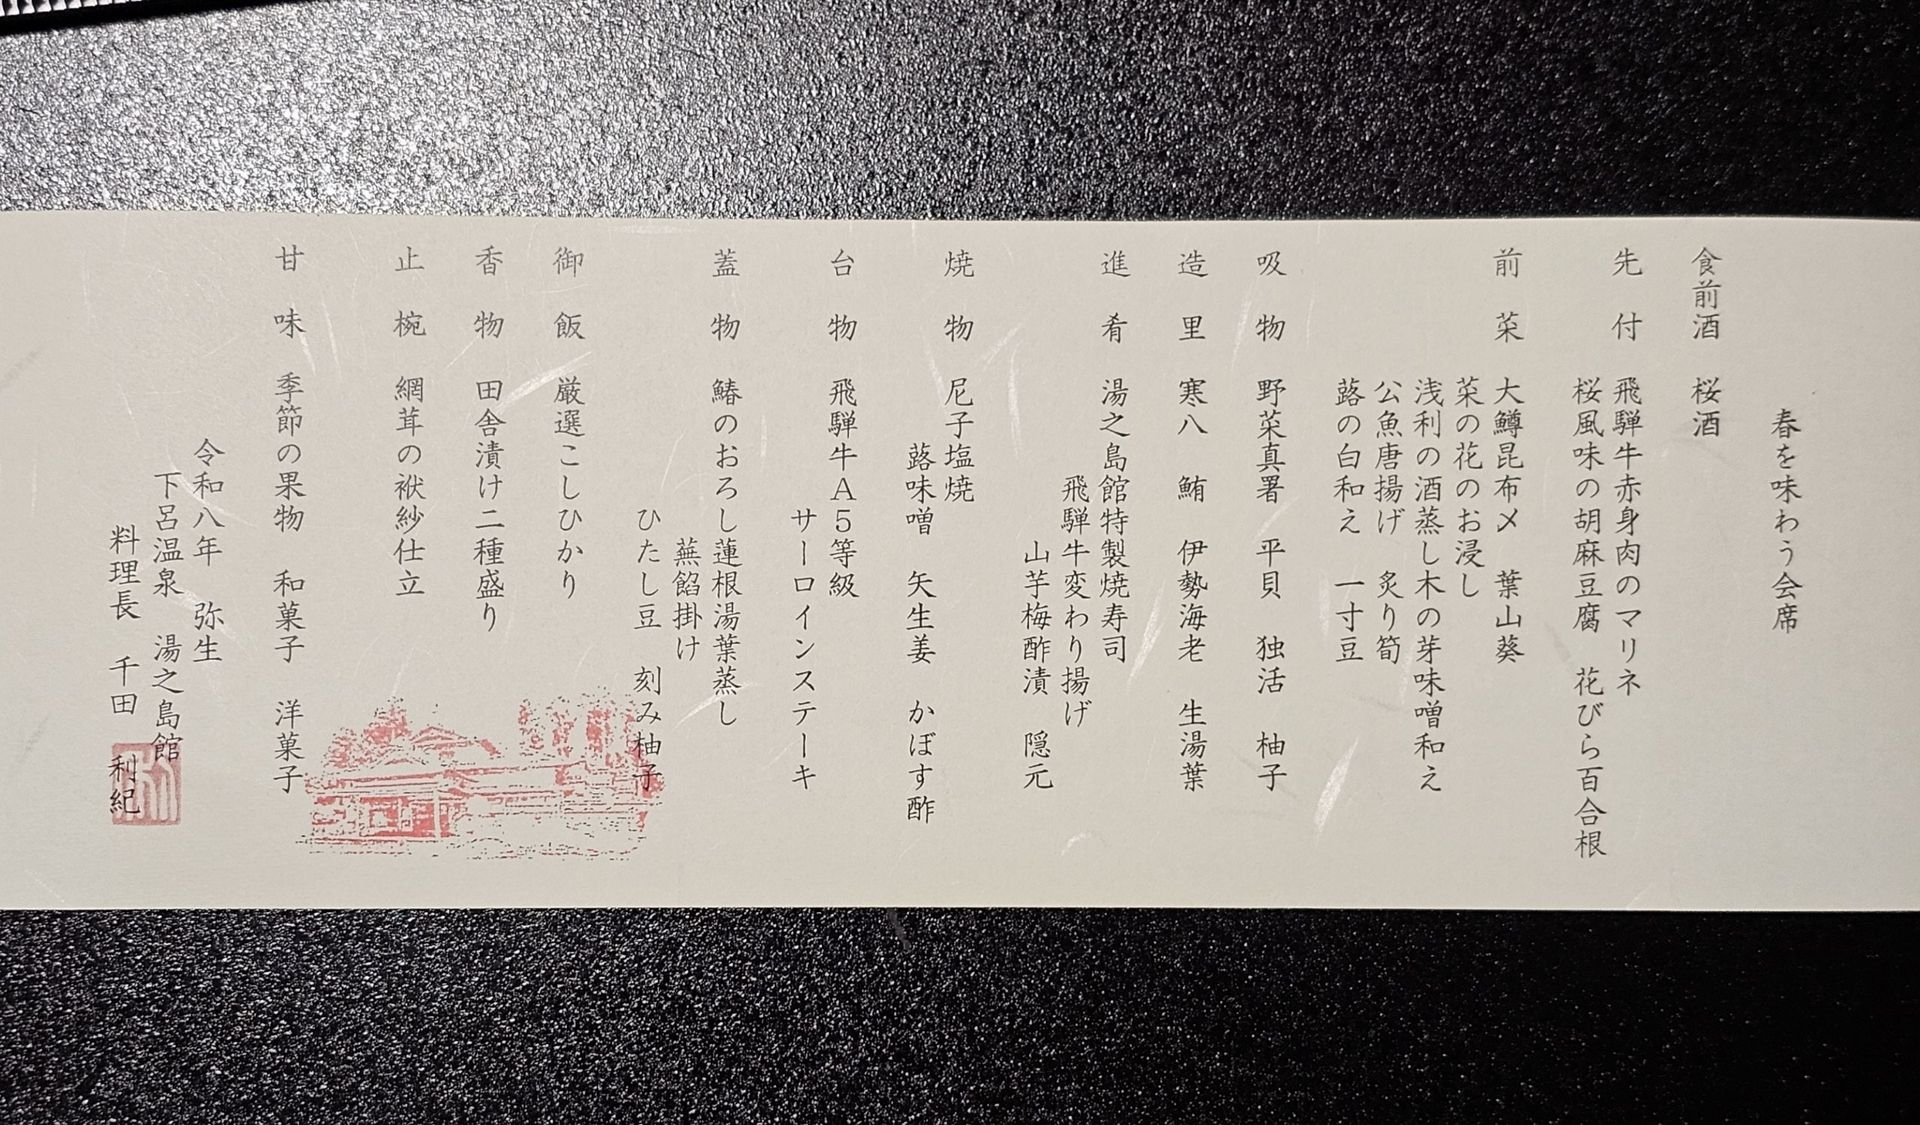 春を味わう会席
食前酒 桜酒
先付 飛騨牛赤身肉のマリネ
桜風味の胡麻豆腐 花びら百合根
前菜 大鱒昆布〆 葉山葵
菜の花のお浸し
浅利の酒蒸し木の芽味噌和え
公魚唐揚げ 炙り筍
蕗の白和え 一寸豆
吸物 野菜真署 平貝 独活 柚子
造里 寒八 鮪 伊勢海老 生湯葉
進肴 湯之島館特製焼寿司
飛騨牛変わり揚げ
山芋梅酢漬 隠元
焼物 尼子塩焼
蕗味噌 矢生姜 かぼす酢
台物 飛騨牛A5等級
サーロインステーキ
蓋物 鰆のおろし蓮根湯葉蒸し
蕪餡掛け
ひたし豆 刻み柚子
御飯 厳選こしひかり
香物 田舎漬け二種盛り
止椀 網茸の袱紗仕立
甘味 季節の果物 和菓子 洋菓子
令和八年 弥生
下呂温泉 湯之島館
料理長 千田 利紀